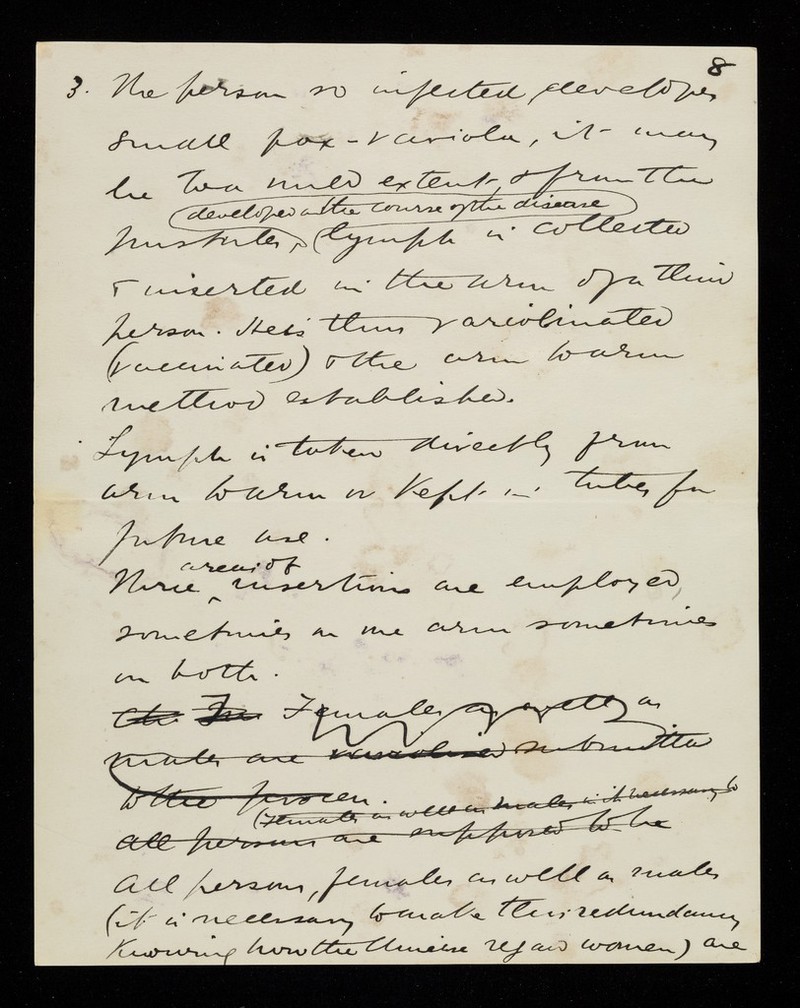 8
3. The person so infected, developes
small pox - variola, it may
be to a mild extent, & from the
developed in the course of the disease
pustules, lymph is collected
& inserted in the arm of a third
person. He is thus variolinated
(vaccinated) & the arm to arm
method established.
Lymph is taken directly from
arm to arm or kept in tubes for
future use.
areas of
Three insertions are employed,
sometimes on one arm sometimes
on both.
Females as well as
males are submitted
to the process.
(Females as well as males is it necessary to
all persons are supposed to be
All persons, females as well as males
(it is necessary to make this redundancy
knowing how the Chinese regard women) are